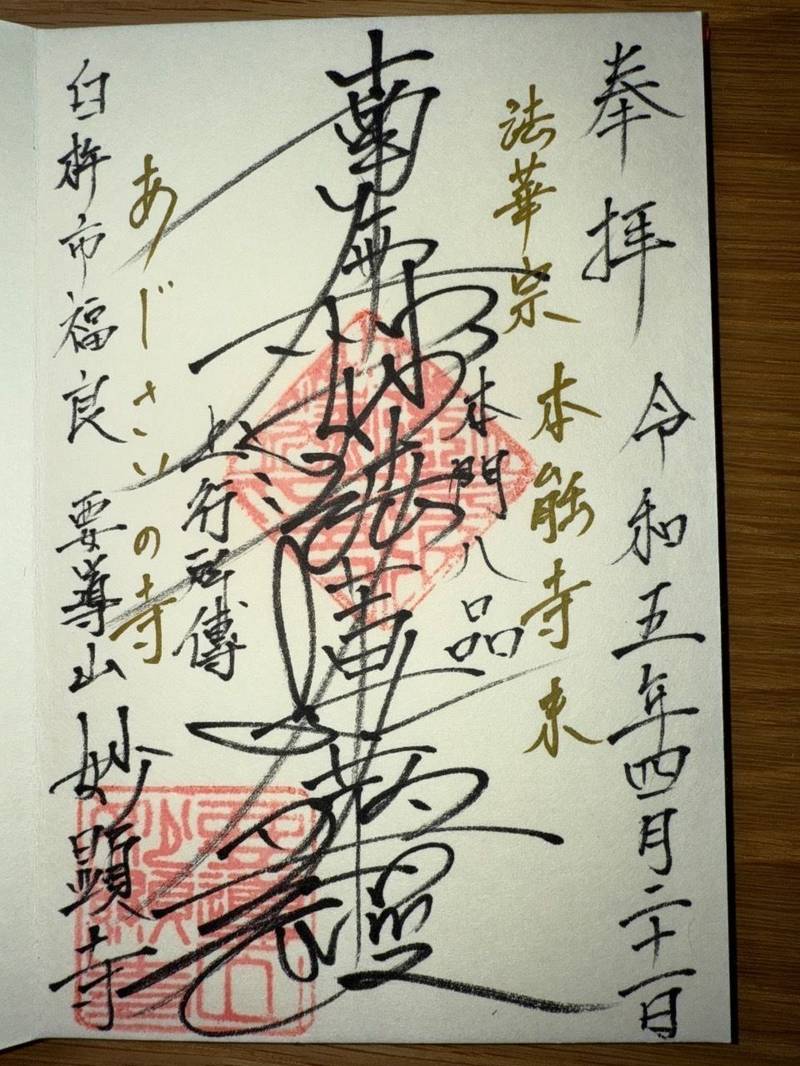 奉拝 令和五年四月二十一日
法華宗 本能寺末
本門八品
南無妙法蓮華経
上行所傳
あじさいの寺
臼杵市福良 要導山 妙顕寺